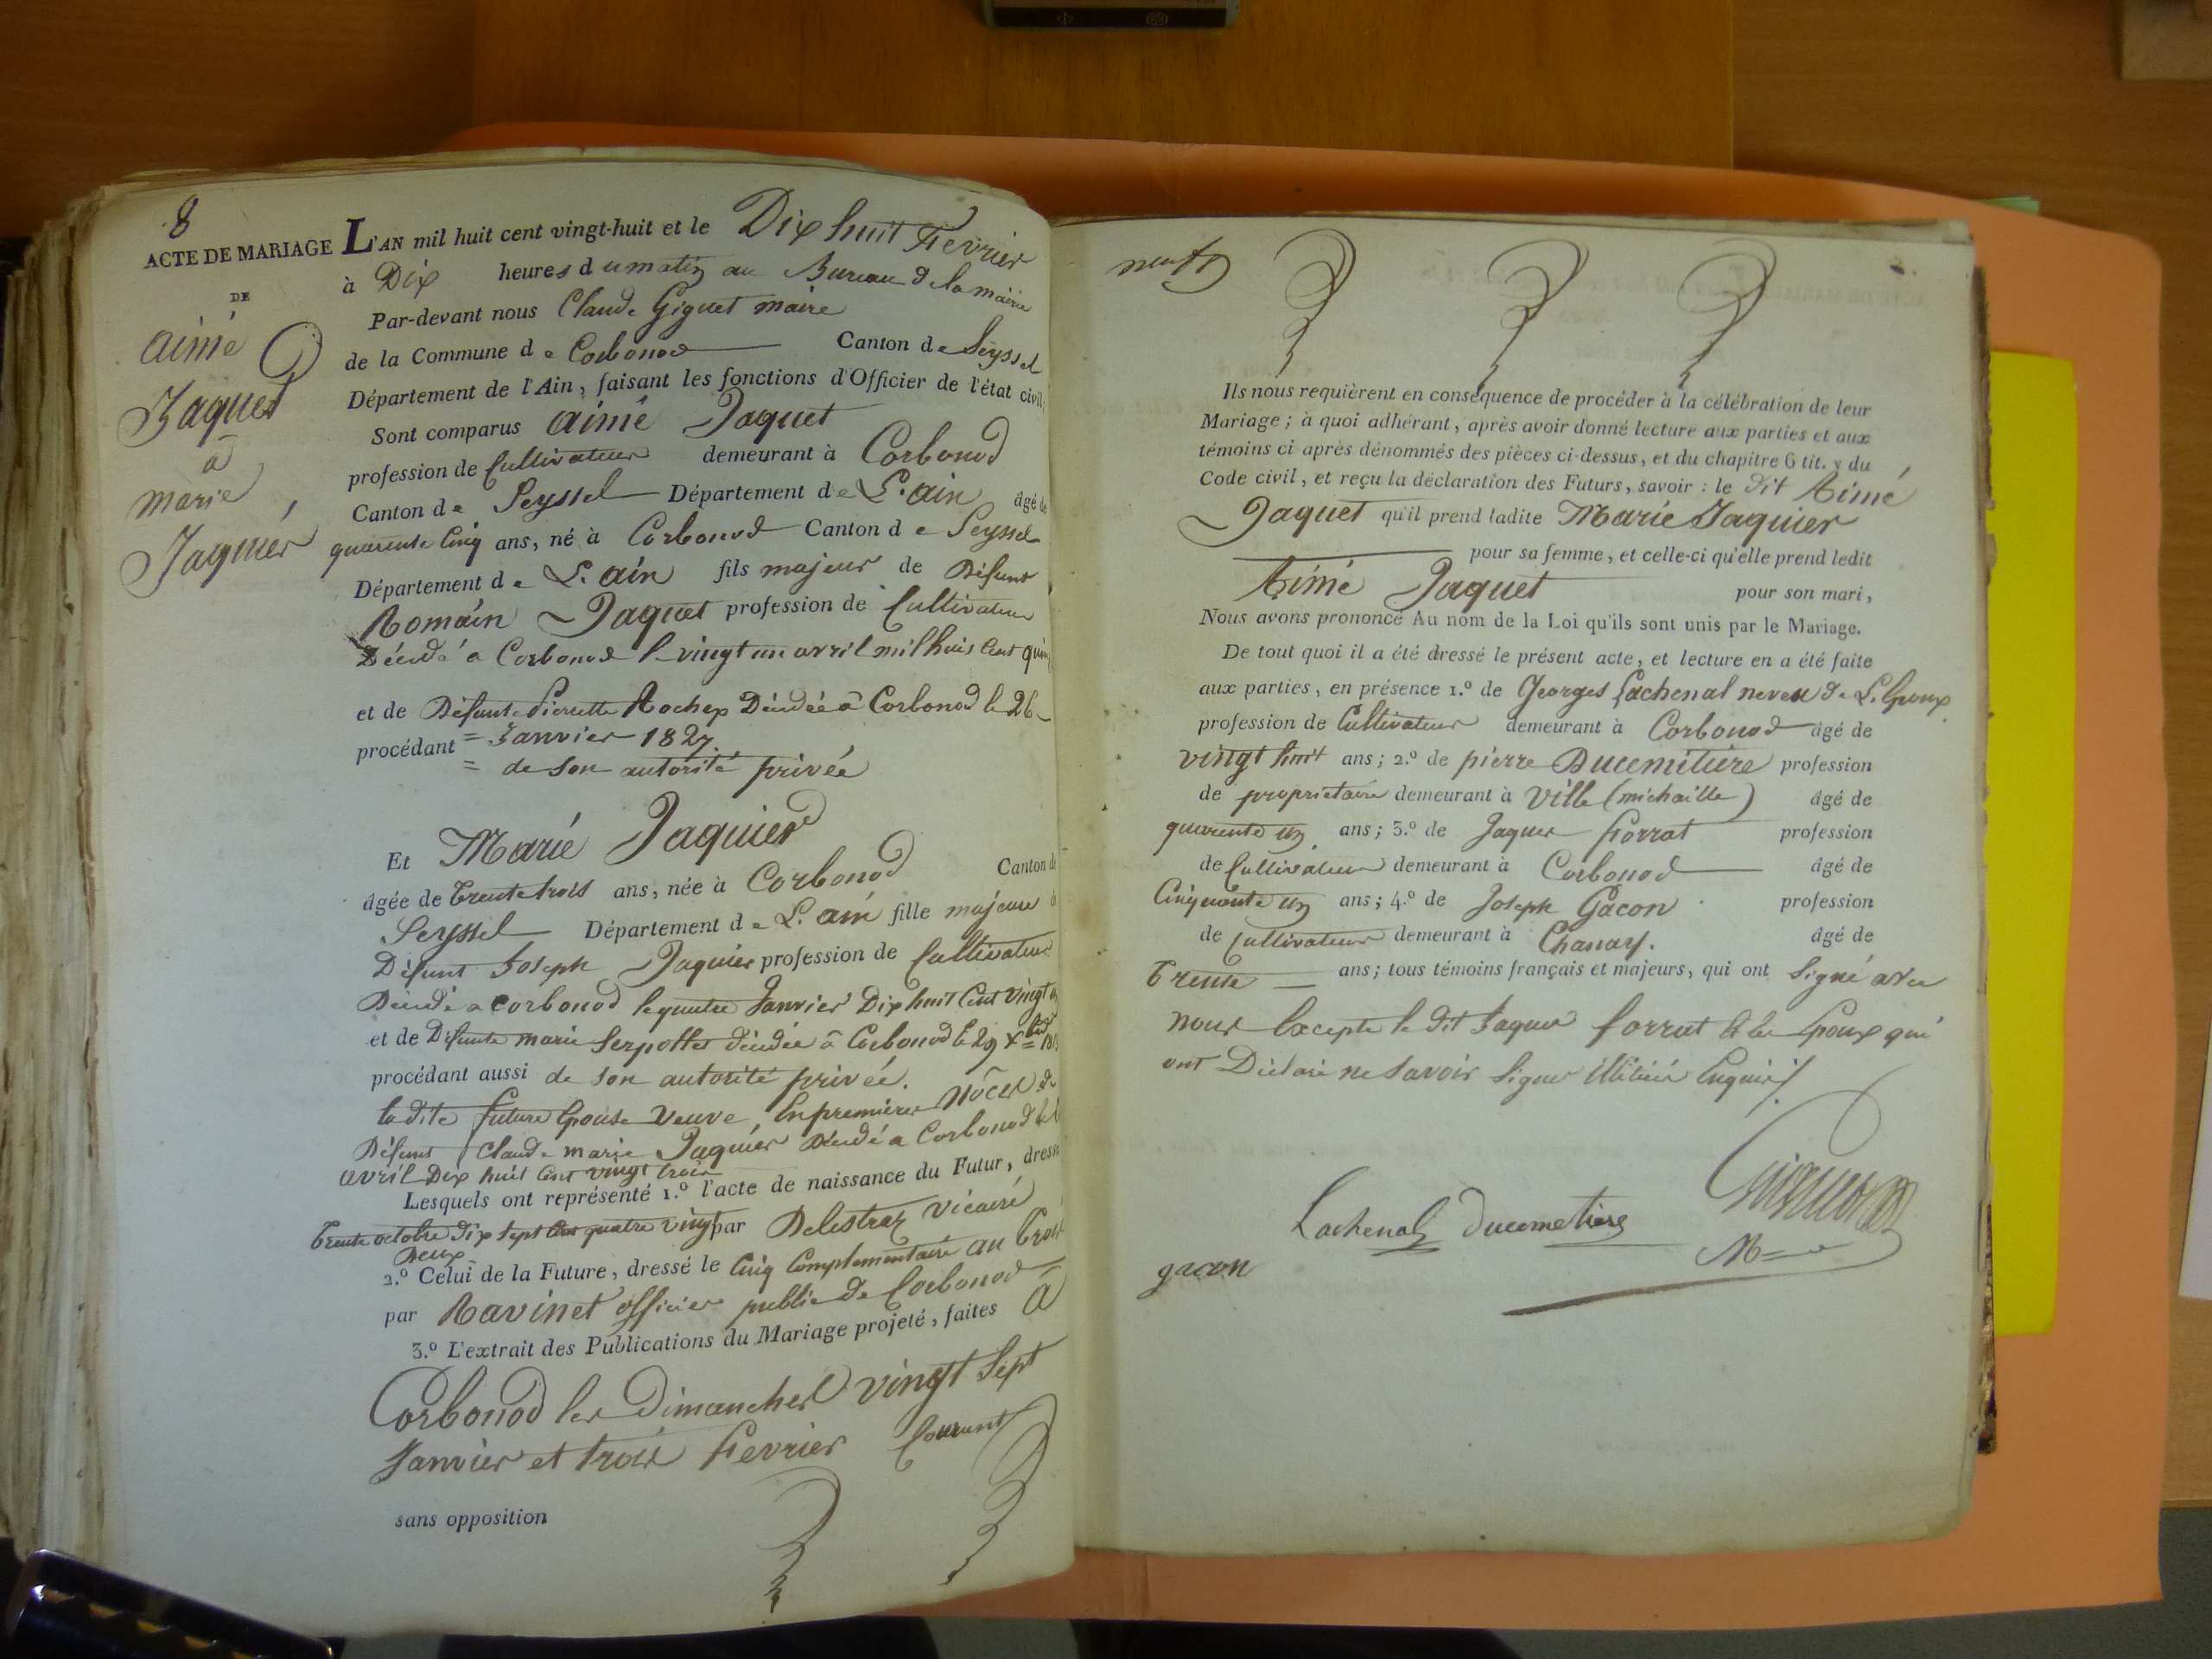 8
ACTE DE MARIAGE
DE
aimé
Jaquet
à
marie
Jaquier
L'AN mil huit cent vingt-huit et le Dix huit Fevrier
à Dix heures du matin au Bureau de la mairie
Par-devant nous Claude Giguet maire
de la Commune de Corbonod Canton de Seyssel
Département de l'Ain, faisant les fonctions d'Officier de l'état civil,
Sont comparus aimé Jaquet
profession de Cultivateur demeurant à Corbonod
Canton de Seyssel Département de L'ain âgé de
quarente Cinq ans, né à Corbonod Canton de Seyssel
Département de L'ain fils majeur de Défunt
Romain Jaquet profession de Cultivateur
Décédé a Corbonod le vingt un avril mil huit Cent
et de Défunte Pierrette Rochex Décédée à Corbonod le 26
= Janvier 1827.
procédant = de son autorité privée
Et Marie Jaquier
âgée de trente trois ans, née à Corbonod Canton de
Seyssel Département de L'ain fille majeure de
Défunt Joseph Jaquier profession de Cultivateur
Décédé a Corbonod le quatre Janvier Dix huit Cent vingt
et de Défunte marie Serpollet décédée à Corbonod le 29 Xbre
procédant aussi de son autorité privée.
la dite future Epouse Veuve En premieres nôces de
Défunt Claude marie Jaquier Décédé a Corbonod le
avril Dix huit Cent vingt trois
Lesquels ont représenté 1.º l'acte de naissance du Futur, dressé
trente octobre dix sept Cent quatre vingt par Delestraz vicaire
Deux
2.º Celui de la Future, dressé le Cinq Complementaire an trois
par Ravinet officier public de Corbonod
3.º L'extrait des Publications du Mariage projeté, faites à
Corbonod les Dimanches vingt Sept
Janvier et trois Fevrier Courant
sans opposition
neuf
Ils nous requièrent en conséquence de procéder à la célébration de leur
Mariage; à quoi adhérant, après avoir donné lecture aux parties et aux
témoins ci-après dénommés des pièces ci-dessus, et du chapitre 6 tit. v du
Code civil, et reçu la déclaration des Futurs, savoir : le dit Aimé
Jaquet qu'il prend ladite Marie Jaquier
pour sa femme, et celle-ci qu'elle prend ledit
Aimé Jaquet pour son mari,
Nous avons prononcé Au nom de la Loi qu'ils sont unis par le Mariage.
De tout quoi il a été dressé le présent acte, et lecture en a été faite
aux parties, en présence 1.º de Georges Lachenal neveu de L'Epoux
profession de Cultivateur demeurant à Corbonod âgé de
vingt huit ans; 2.º de pierre Ducemitière profession
de proprietaire demeurant à Ville (michaille) âgé de
quarente un ans; 3.º de Jaques Forrat profession
de Cultivateur demeurant à Corbonod âgé de
Cinquante un ans; 4.º de Joseph Gacon profession
de Cultivateur demeurant à Chanay. âgé de
trente ans; tous témoins français et majeurs, qui ont Signé avec
nous Excepté le dit Jaques forrat et les Epoux qui
ont Déclaré ne Savoir Signer Enquis
Lachenal ducemetiere
gacon